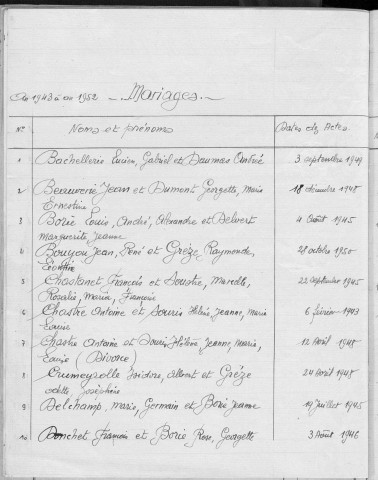 De 1943 à au 1952 - Mariages. -
N° Noms et prénoms Dates des Actes
1 Bachellerie Lucien, Gabriel et Daumas 3 septembre 1949
2 Beauverie Jean et Dumont Georgette, Marie 18 décembre 1948
Ernestine
3 Borie Louis, André, Alexandre et Delvert 4 Août 1945
Marguerite Jeanne
4 Bouyou Jean, René et Grèze Raymonde, 28 octobre 1950
Léontine
5 Chastanet François et Soustre, Marcelle, 22 septembre 1945
Rosalie, Maria, François
6 Chastre Antoine et Souris Hélène, Jeanne, Marie 6 février 1943
Louise
7 Chastre Antoine et Souris Hélène, Jeanne, Marie, 12 Avril 1948
Louise (Divorce)
8 Crumeyrolle Isidore, Albert et Grèze 24 Avril 1948
Odette, Joséphine
9 Delchamp, Marie, Germain et Borie Jeanne 19 Juillet 1945
10 François et Borie Rose, Georgette 3 Août 1946